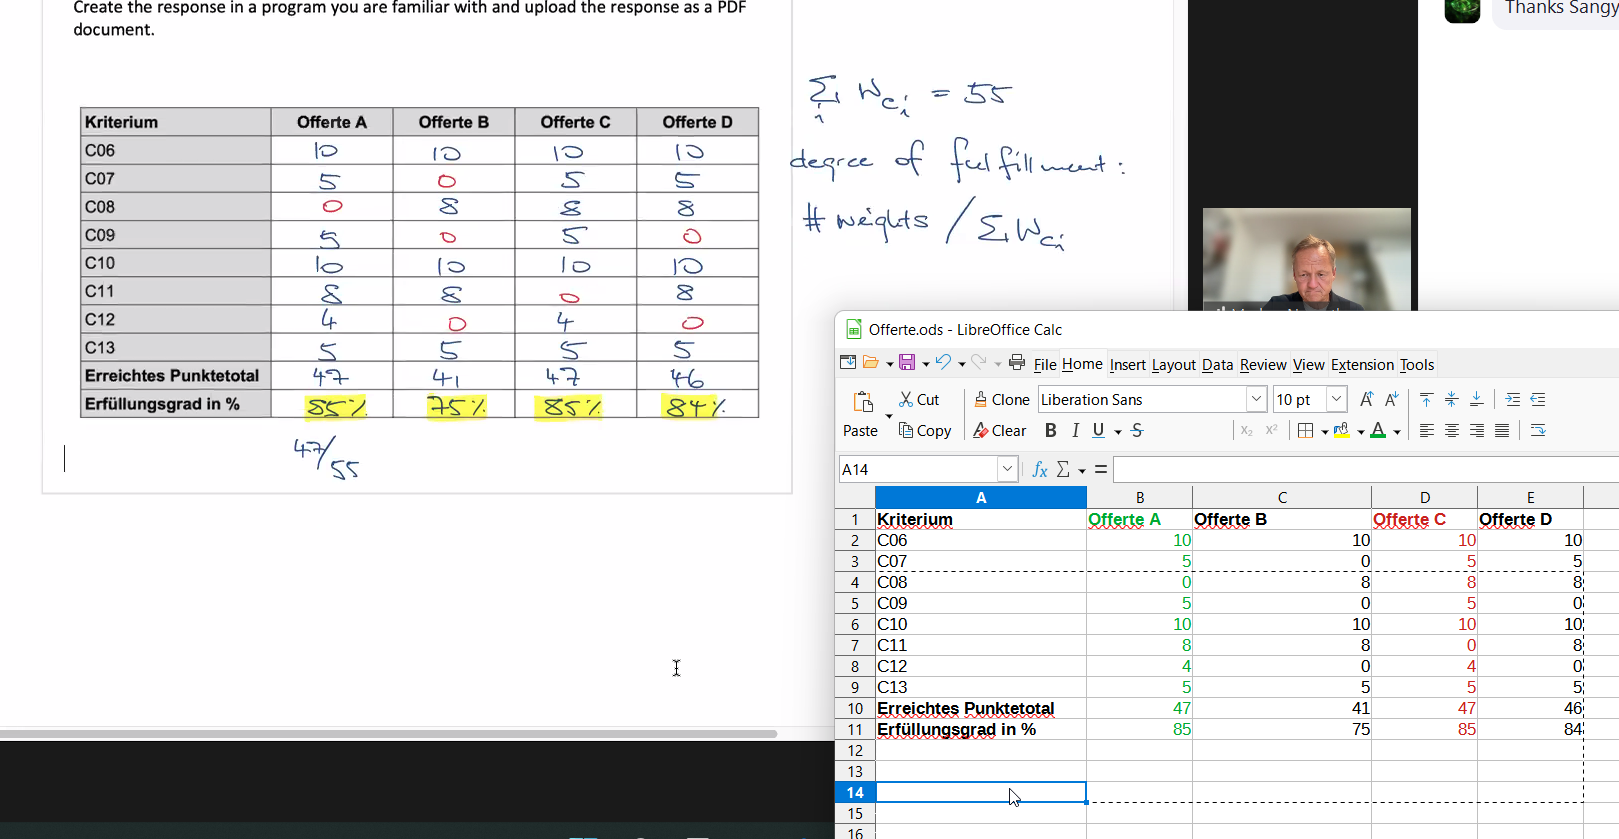 Create the response in a program you are familiar with and upload the response as a PDF
document.
Kriterium Offerte A Offerte B Offerte C Offerte D
C06 10 10 10 10
C07 5 0 5 5
C08 0 8 8 8
C09 5 0 5 0
C10 10 10 10 10
C11 8 8 0 8
C12 4 0 4 0
C13 5 5 5 5
Erreichtes Punktetotal 47 41 47 46
Erfüllungsgrad in % 85% 75% 85% 84%
47/55
Σ i W c i = 55
degree of fulfillment:
# weights / Σ W c i
Thanks Sangy
Offerte.ods - LibreOffice Calc
File Home Insert Layout Data Review View Extension Tools
Cut Clone Liberation Sans 10 pt
Paste Copy Clear B I U S X₂ X²
A14 fx Σ =
A B C D E
1 Kriterium Offerte A Offerte B Offerte C Offerte D
2 C06 10 10 10 10
3 C07 5 0 5 5
4 C08 0 8 8 8
5 C09 5 0 5 0
6 C10 10 10 10 10
7 C11 8 8 0 8
8 C12 4 0 4 0
9 C13 5 5 5 5
10 Erreichtes Punktetotal 47 41 47 46
11 Erfüllungsgrad in % 85 75 85 84
12
13
14
15
16